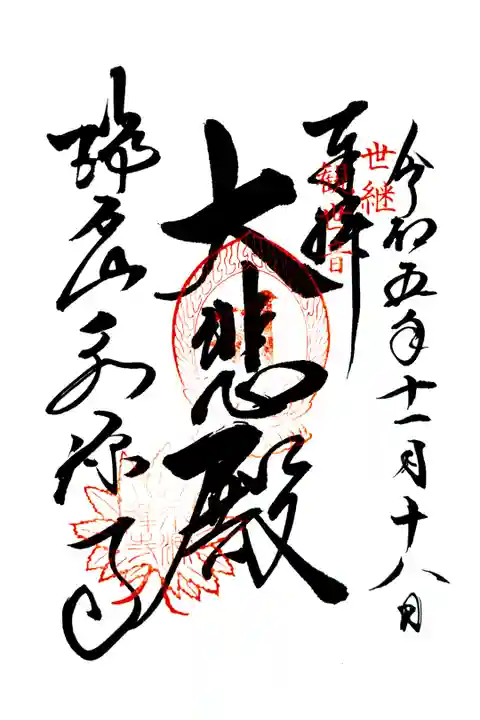 令和五年十一月十八日
奉拝
世継
観世音
大悲殿
瑞石山永源寺